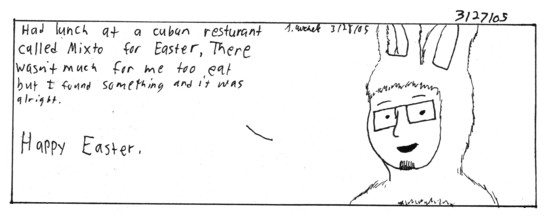 3/27/05
Had lunch at a cuban resturant
called Mixto for Easter, There
wasn't much for me too eat
but I found something and it was
alright.
Happy Easter.
3/28/05